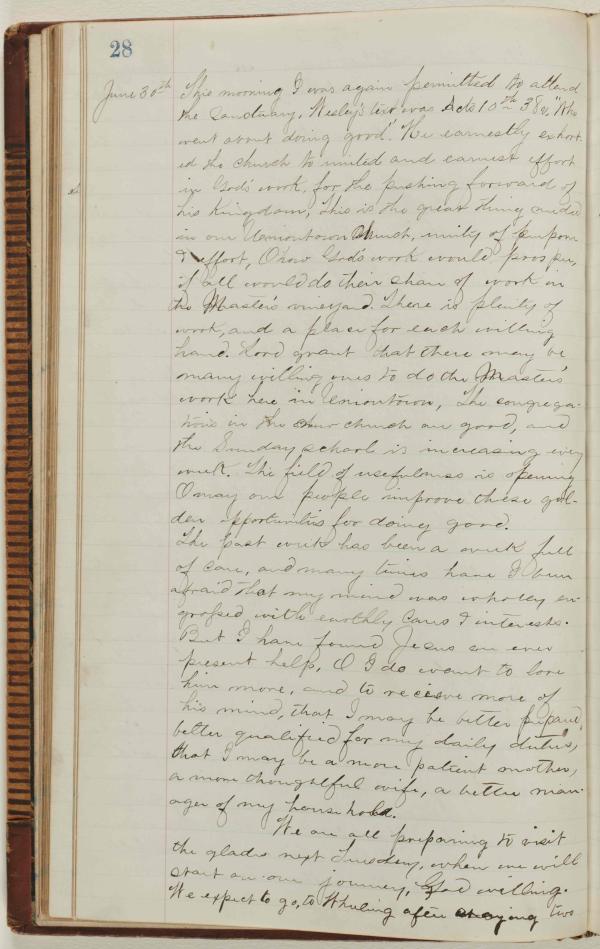 28
June 30th This morning I was again permitted to attend
the Sanctuary, Wesley's text was Acts 10th 38v, "Who
went about doing good". He earnestly exhort-
ed the church to united and earnest effort
in God's work, for the pushing forward of
his Kingdom, This is the great thing needed
in our Uniontown Church, unity of purpose
& effort, O how God's work would prosper,
if all would do their share of work in
the Master's vineyard. There is plenty of
work, and a place for each willing
hand. Lord grant that there may be
many willing ones to do the Master's
work here in Uniontown, The congrega-
tions in the new church are good, and
the Sunday school is increasing every
week. The field of usefulness is opening
O may our people improve these gol-
den opportunities for doing good.
The past week has been a week full
of care, and many times have I been
afraid that my mind was wholey en-
grossed with earthly cares & interests.
But I have found Jesus an ever
present help, O I do want to love
him more, and to recieve more of
his mind, that I may be better prepared,
better qualified for my daily duties,
that I may be a more patient mother,
a more thoughtful wife, a better man-
ager of my household.
We are all preparing to visit
the glades next Tuesday, when we will
start on our journey, God willing.
We expect to go, to Wheeling after staying two